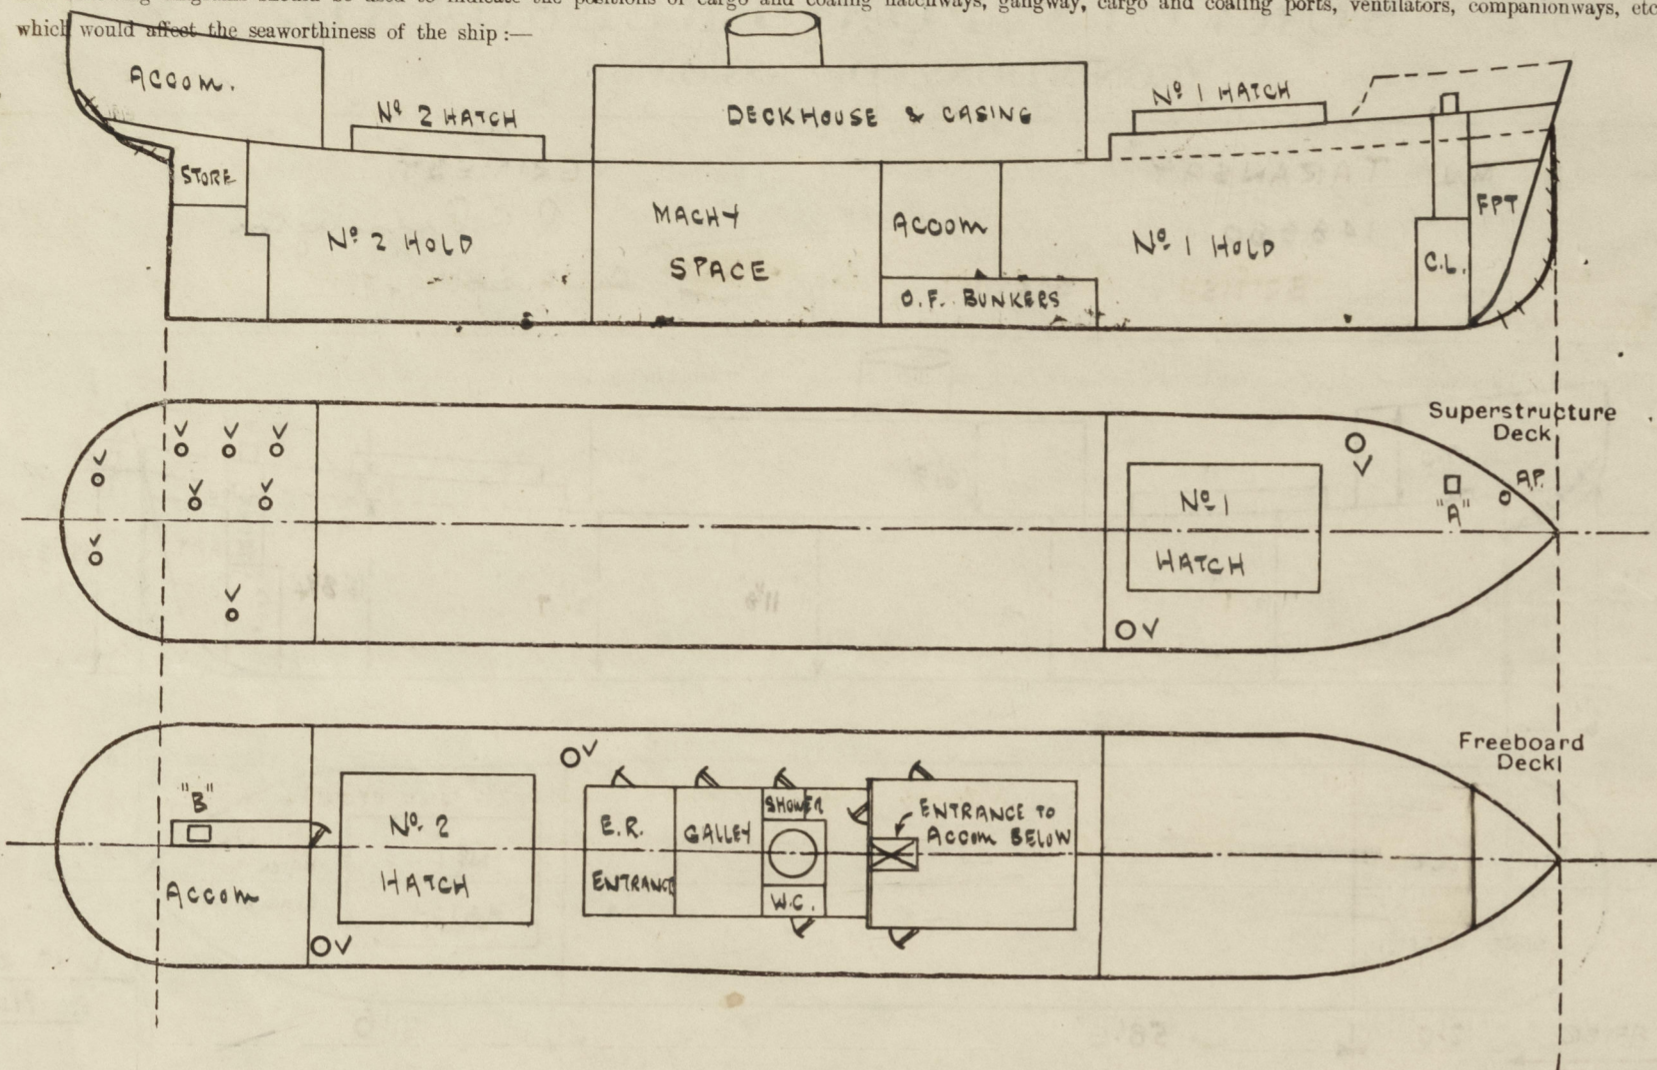 to indicate the positions of cargo and coaling hatchways, gangway, cargo and coaling ports, ventilators, companionways, etc
which would affect the seaworthiness of the ship :—
ACCOM.
Nº 2 HATCH
DECKHOUSE & CASING
Nº 1 HATCH
STORE
Nº 2 HOLD
MACHY
SPACE
ACOOM
O.F. BUNKERS
Nº 1 HOLD
C.L.
FPT
Superstructure
Deck
V V V
V
V V
V
V
V
Nº 1
HATCH
V
"A"
A.P.
V
Freeboard
Deck
"B"
ACCOM
V
Nº 2
HATCH
V
E.R.
ENTRANCE
GALLEY
SHOWER
W.C.
ENTRANCE TO
ACCOM BELOW